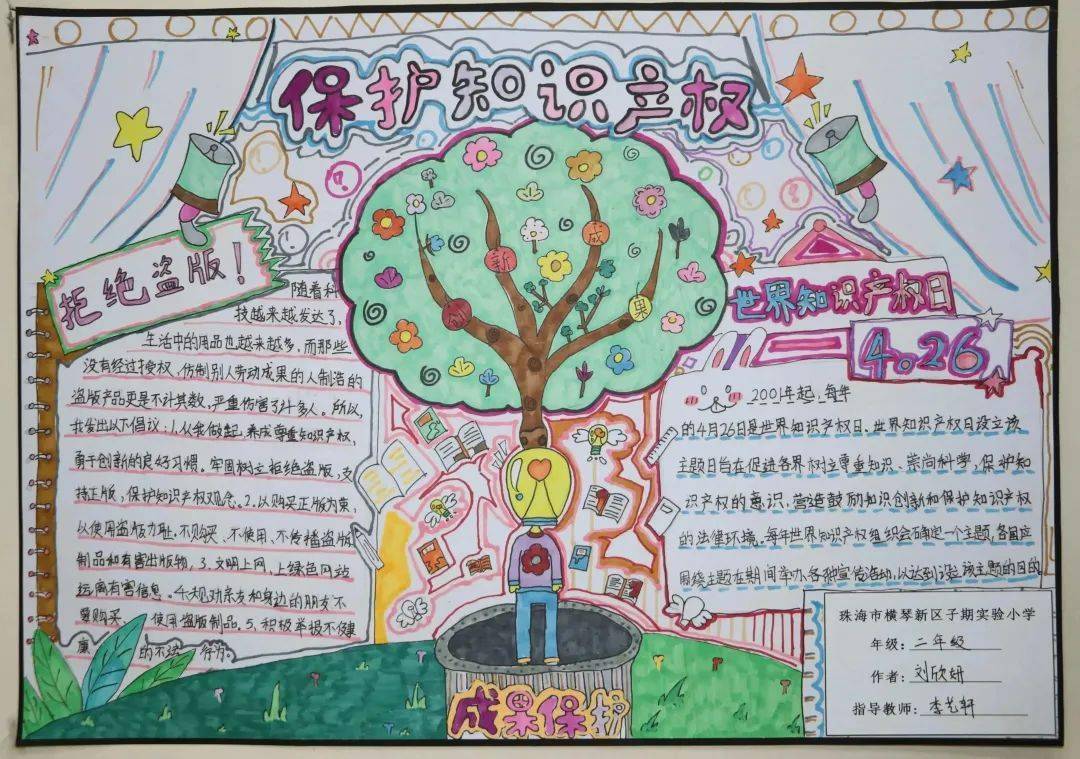 保护知识产权
拒绝盗版！
随着科
技越来越发达了，
生活中的用品也越来越多，而那些
没有经过授权，仿制别人劳动成果的人制造的
盗版产品更是不计其数，严重伤害了许多人。所以，
我发出以下倡议：1.从我做起，养成尊重知识产权，
勇于创新的良好习惯。牢固树立拒绝盗版，支
持正版，保护知识产权观念。2.以购买正版为荣，
以使用盗版为耻，不购买、不使用、不传播盗版
制品和有害出版物。3.文明上网，上绿色网站
远离有害信息。4.规劝亲友和身边的朋友不
要购买、使用盗版制品。5.积极举报不健
康、的不法行为。
创
新
成
果
世界知识产权日
4.26
2001年起，每年
的4月26日是世界知识产权日、世界知识产权日设立该
主题日旨在促进各界树立尊重知识、崇尚科学，保护知
识产权的意识，营造鼓励知识创新和保护知识产权
的法律环境。每年世界知识产权组织会确定一个主题，各国应
围绕主题在期间举办各种宣传活动，以达到设该主题的目的
成果保护
珠海市横琴新区子期实验小学
年级：二年级
作者：刘欣妍
指导教师：李艺轩